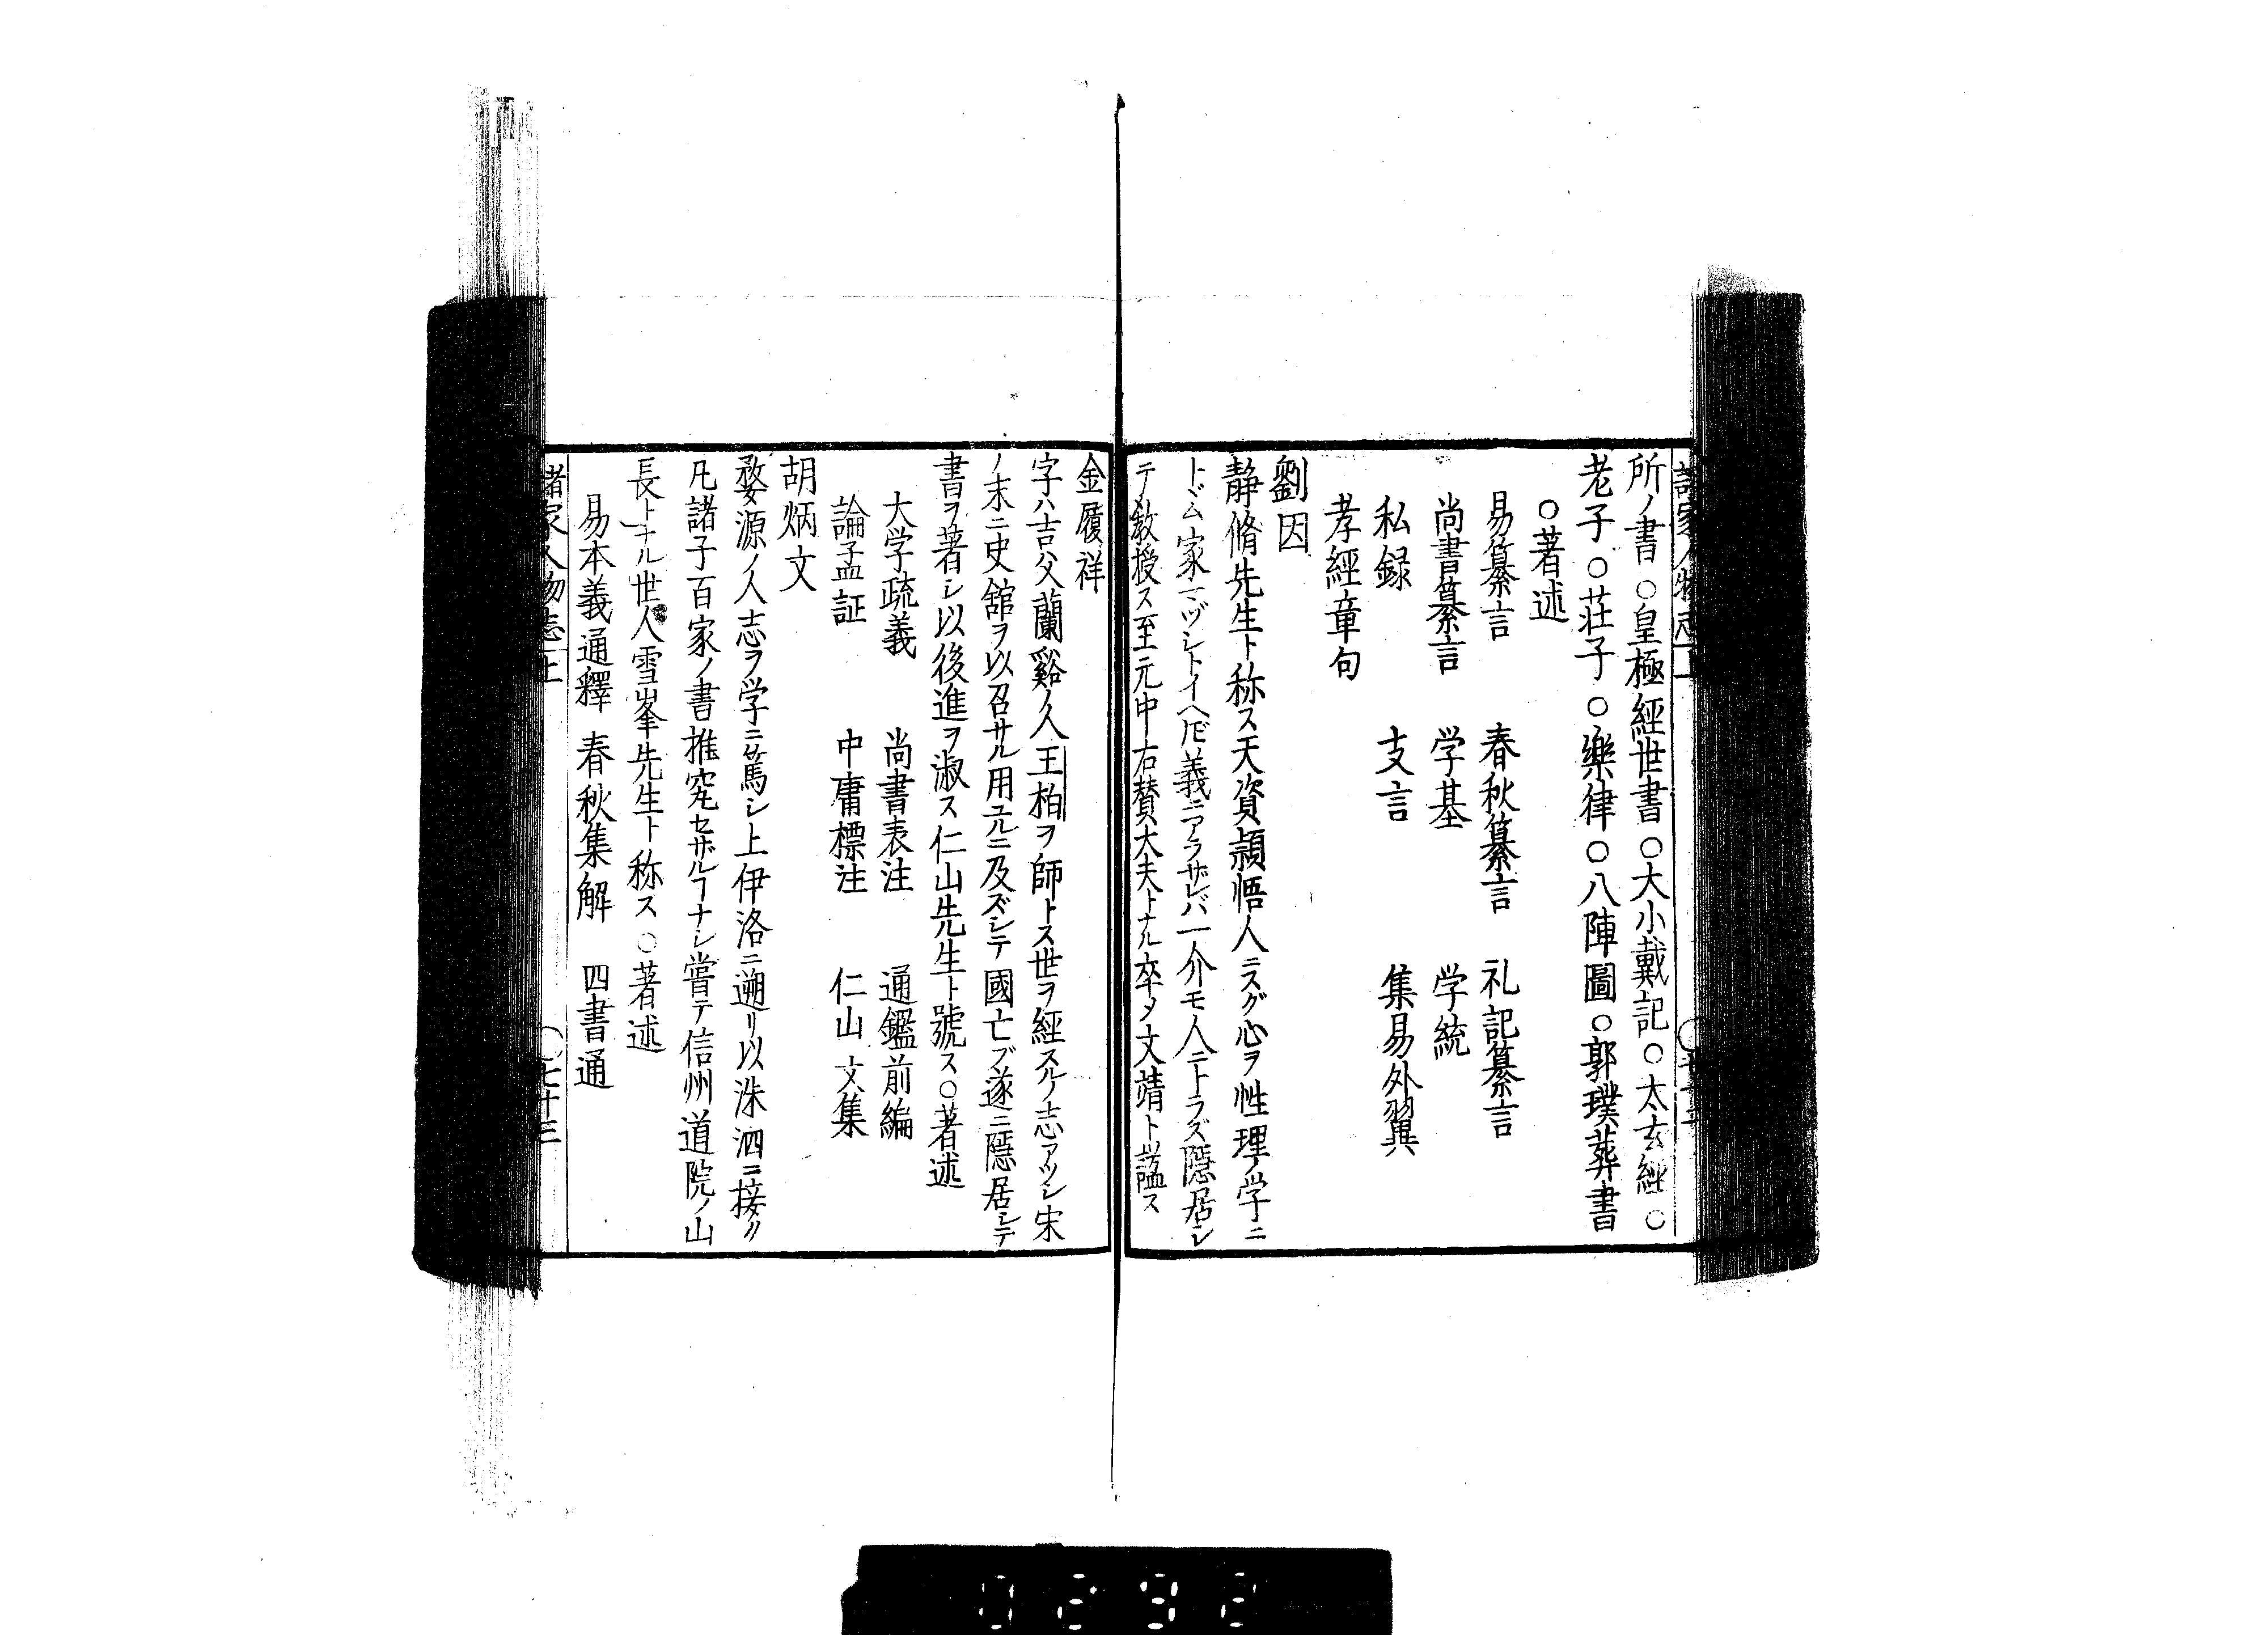 諸家人物志上
所ノ書○皇極經世書○大小戴記○太玄經○
老子○莊子○樂律○八陣圖○郭璞葬書
○著述
易纂言　春秋纂言　礼記纂言
尚書纂言　学基　学統
私録　支言　集易外翼
孝經章句
劉因
静脩先生ト称ス天資頴悟人ニスグ心ヲ性理ノ学ニ
トヾム家マヅシトイヘ𪜈義ニアラザレバ一介モ人ニトラズ隠居シ
テ教授ス至元中右賛大夫トナル卒メ文靖ト謚ス
金履祥
字ハ吉父蘭谿ノ人王栢ヲ師トス世ヲ經スルノ志アツシ宋
ノ末ニ史舘ヲ以召サル用ユルニ及ズシテ國亡ブ遂ニ隠居シテ
書ヲ著シ以後進ヲ淑ス仁山先生ト號ス○著述
大学疏義　尚書表注　通鑑前編
論孟証　中庸標注　仁山文集
胡炳文
婺源ノ人志ヲ学ニ篤シ上伊洛ニ遡リ以洙泗ニ接ク
凡諸子百家ノ書推究セザルヿナシ嘗テ信州道院ノ山
長トナル世人雪峯先生ト称ス○著述
易本義通釋　春秋集解　四書通
諸家人物志上　○七十三